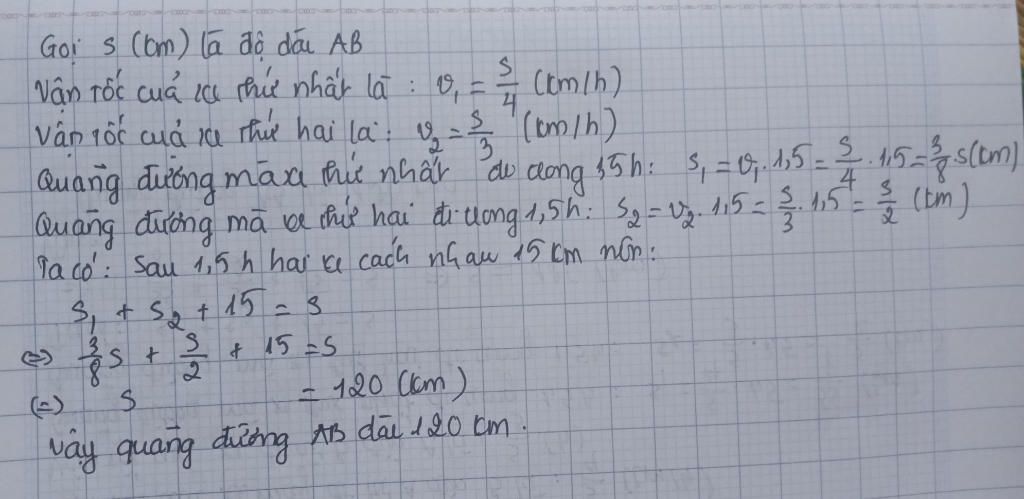 Gọi s (km) là độ dài AB
Vận tốc của xe thứ nhất là : v₁ = s/4 (km/h)
Vận tốc của xe thứ hai là : v₂ = s/3 (km/h)
Quãng đường mà xe thứ nhất đi trong 1,5h : s₁ = v₁ . 1,5 = s/4 . 1,5 = 3/8 . s (km)
Quãng đường mà xe thứ hai đi trong 1,5h : s₂ = v₂ . 1,5 = s/3 . 1,5 = s/2 (km)
Ta có : Sau 1,5h hai xe cách nhau 15 km nên :
s₁ + s₂ + 15 = s
⇔ 3/8 s + s/2 + 15 = s
⇔ s = 120 (km)
Vậy quãng đường AB dài 120 km .